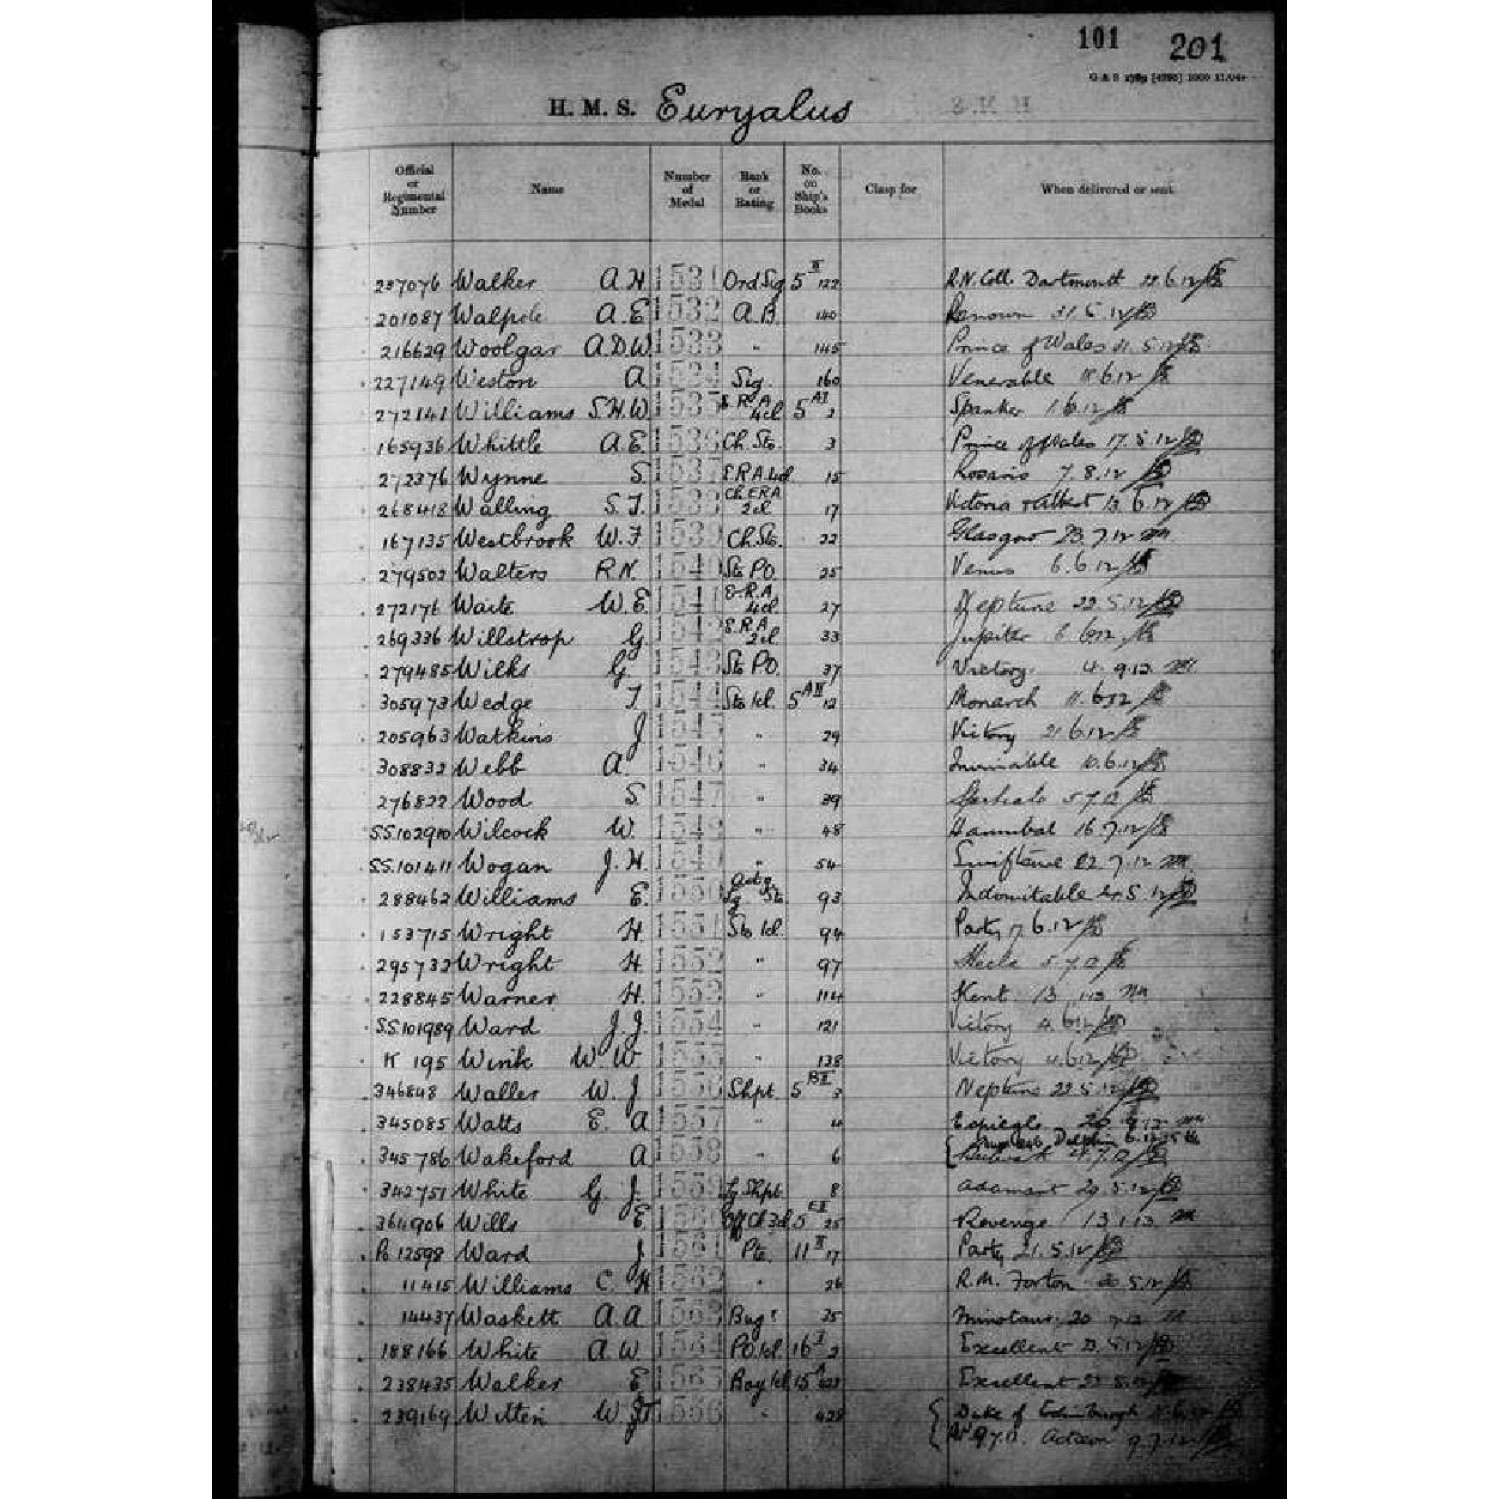 101 201
H. M. S. Euryalus
Official or Regimental Number Name Number of Medal Rank or Rating No. on Ship's Books Clasp for When delivered or sent
237076 Walker A.H 1531 Ord Sig 5 II 122 R.N. Coll. Dartmouth 6.12
201087 Walpole A.E 1532 A.B. 140 Renown
216629 Woolgar A.D.W 1533 " 145 Prince of Wales 5.12
227149 Weston A 1534 Sig. 160 Venerable 11.6.12
272141 Williams S.H.W. 1535 E.R.A 4cl 5 AI 2 Spanker 1.6.12
165936 Whittle A.E. 1536 Ch. Sto. 3 Prince of Wales 17.5.12
272376 Wynne S. 1537 E.R.A 4cl 15 Rosario 7.8.12
268418 Walling S.J. 1538 Ch.ERA 2cl 17 Victoria & Albert 13.6.12
167135 Westbrook W.J. 1539 Ch.Sto. 22 Glasgow 23.7.12
279502 Walters R.N. 1540 Sto PO. 25 Venus 6.6.12
272176 Waite W.E. 1541 E.R.A. 4cl. 27 Neptune 22.5.12
269336 Willstrop G. 1542 E.R.A 2cl 33 Jupiter
279485 Wilks G 1543 Sto PO. 37 Victory. 4.9.12
305973 Wedge J 1544 Sto 1cl. 5 AII 12 Monarch 11.6.12
205963 Watkins J 1545 " 29 Victory 21.6.12
308832 Webb A 1546 " 34 10.6.12
276822 Wood S. 1547 " 39 5.7.12
SS.102910 Wilcock W. 1548 " 48 Hannibal 16.7.12
SS.101411 Wogan J.H. 1549 " 54 Swiftsure 22.7.12
288462 Williams E. 1550 Actg Lg Sto 93 Indomitable 5.12
153715 Wright H. 1551 Sto 1cl. 94 Party 17.6.12
295732 Wright H. 1552 " 97 Hecla 5.7.12
228845 Warner H. 1553 " 114 Kent 13.1.13
SS101989 Ward J.J. 1554 " 121 Victory 4.6.12
K 195 Wink W.W 1555 " 138 Victory 4.6.12
346848 Waller W.J 1556 Shpt. 5 BI 3 Neptune 22.5.12
345085 Watts E. A 1557 " 4 Espiegle
345786 Wakeford A 1558 " 6 Dolphin Bulwark 4.7.12
342751 White G. J. 1559 Lg Shpt 8 Adamant 20.5.12
364906 Wills E. 1560 Off Ck 3cl 5 EI 25 Revenge 13.1.13
Po 12598 Ward J. 1561 Pte. 11 II 17 Party 21.5.12
11415 Williams C. H 1562 " 26 R.M. Forton 5.12
14437 Waskett A.A 1563 Bugr 35 Minotaur 20
188166 White A.W. 1564 PO.1cl 16 I 2 Excellent
238435 Walker E 1565 Boy 1cl 15 A Excellent
239169 Witten W 1566 " 428 Duke of Edinburgh
Actaeon 9.7.12